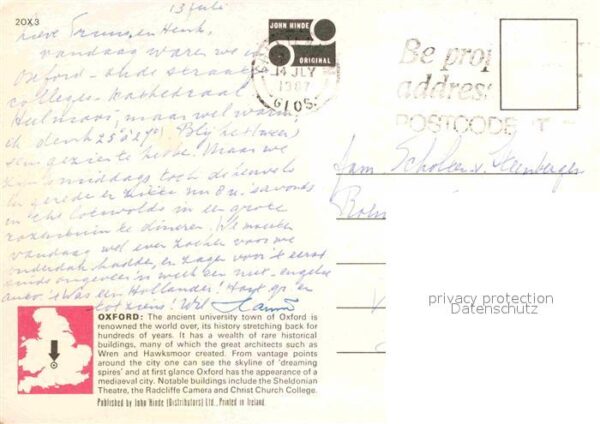 20X3
13 juli
Lieve Truus en Henk,
vandaag waren we in
Oxford - oude straat
colleges - Kathedraal
Heel mooi, maar wel warm
ik denk 25° à 27°! Blij het weer
gezien te hebben. Maar we
zijn 's middags toch de heuvels
in gereden zitten nu 8 u. 's avonds
in the Cotswolds in een grote
rozentuin te dineren. We moesten
vandaag wel even zoeken voor we
onderdak hadden, en zagen voor 't eerst
sinds ongeveer 'n week een niet-engelse
auto. 't Was een Hollander!
tot ziens! Wil
JOHN HINDE
ORIGINAL
14 JLY
1987
GLOS
Be prop
address
POSTCODE IT
OXFORD: The ancient university town of Oxford is
renowned the world over, its history stretching back for
hundreds of years. It has a wealth of rare historical
buildings, many of which the great architects such as
Wren and Hawksmoor created. From vantage points
around the city one can see the skyline of 'dreaming
spires' and at first glance Oxford has the appearance of a
mediaeval city. Notable buildings include the Sheldonian
Theatre, the Radcliffe Camera and Christ Church College.
Published by John Hinde (Distributors) Ltd., Printed in Ireland.
privacy protection
Datenschutz